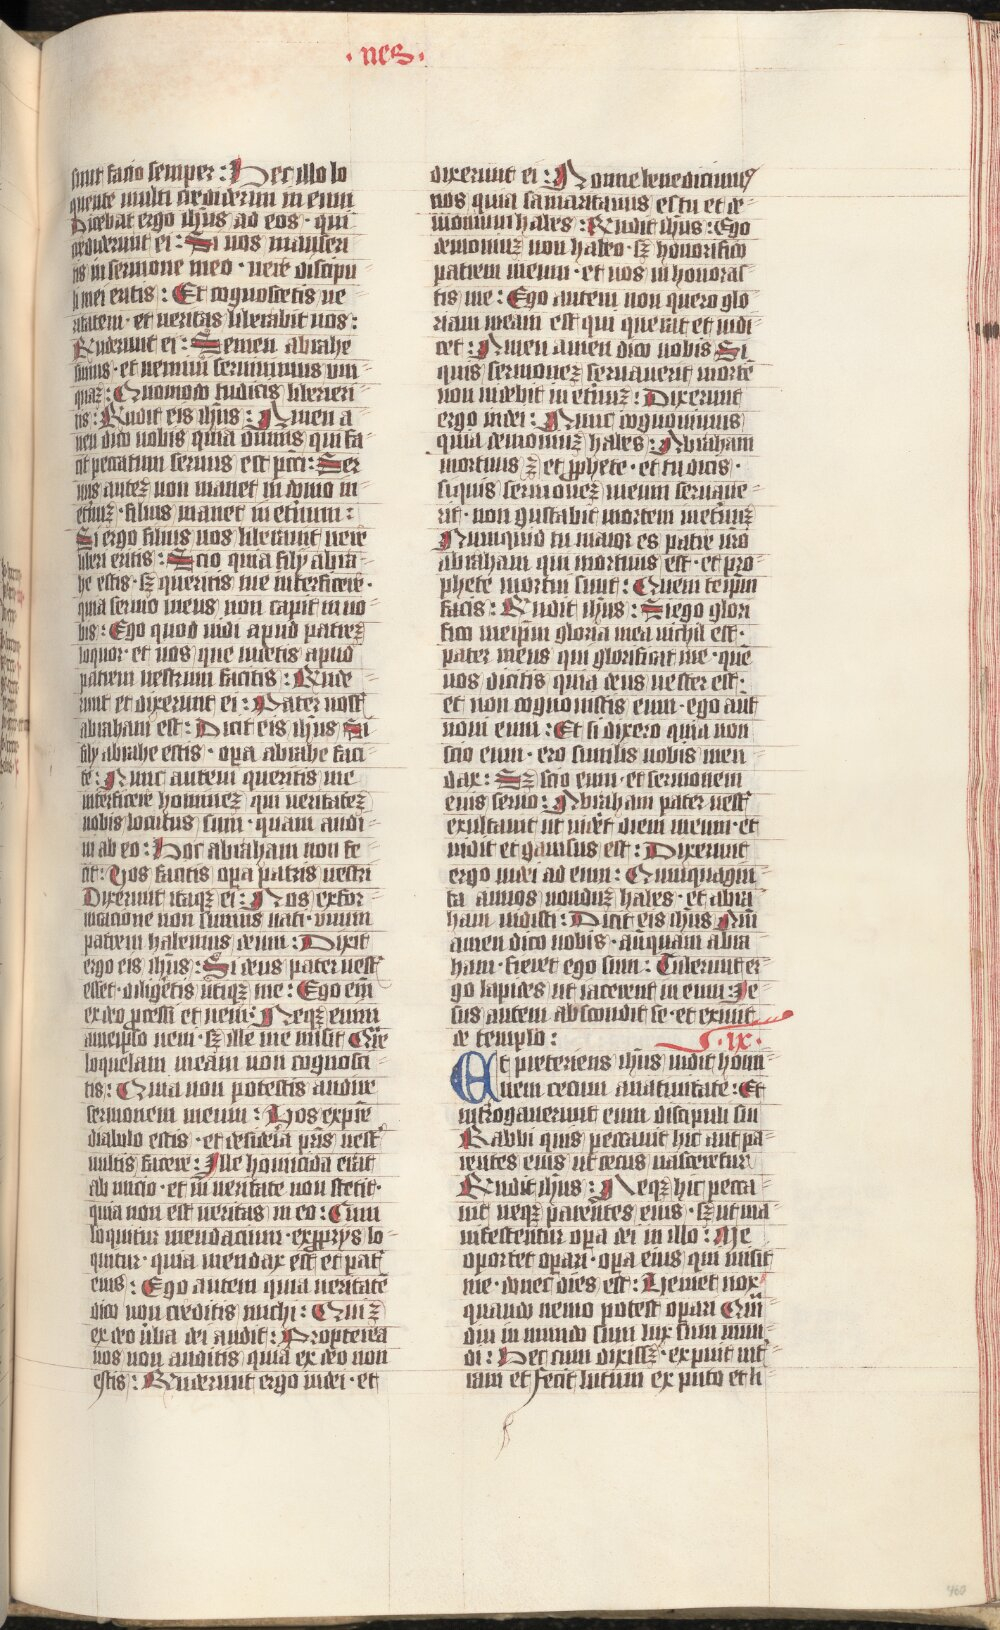 · nes ·
sunt facio semper : Hec illo lo
quente multi crediderunt in eum
Dicebat ergo ihus ad eos · qui
crediderunt ei : Si vos manseri
tis in sermone meo · vere discipu
li mei eritis : Et cognoscetis ve
ritatem · et veritas liberabit vos :
Rnderunt ei : Semen abrahe
sumus · et nemini servivimus un
quaz : Quomodo tu dicis liberi eri
tis : Rndit eis ihus : Amen a
men dico vobis quia omnis qui fa
cit peccatum servus est pcci : Ser
vus autez non manet in domo in
etnuz · filius manet in etnum :
Si ergo filius vos liberavit vere
liberi eritis : Scio quia filij abra
he estis · sz queritis me interficere ·
quia sermo meus non capit in vo
bis : Ego quod vidi apud patrez
loquor · et vos que vidistis apud
patrem vestrum facitis : Rnde
runt et dixerunt ei : Pater nost
abraham est : Dicit eis ihus Si
filij abrahe estis · opa abrahe faci
te : Nunc autem queritis me
interficere hominez qui veritatez
vobis locutus sum · quam audi
vi ab eo : Hoc abraham non fe
cit : Vos facitis opa patris vestri
Dixerunt itaqz ei : Nos ex for
nicacione non sumus nati · unum
patrem habemus deum : Dixit
ergo eis ihus : Si deus pater vest
esset · diligetis utiqz me : Ego em
ex deo pcessi et veni : Neqz enim
a meipso veni · sz ille me misit Qre
loquelam meam non cognosci
tis : Quia non potestis audire
sermonem meum : Vos ex pre
diabolo estis · et desideria pris vest
vultis facere : Ille homicida erat
ab inicio · et in veritate non stetit ·
quia non est veritas in eo : Cum
loquitur mendacium · ex pprijs lo
quitur · quia mendax est et pat
eius : Ego autem quia veritate
dico non creditis michi : Qui z
ex deo vba dei audit : Propterea
vos non auditis quia ex deo non
estis : Rnderunt ergo iudei · et
dixerunt ei : Nonne bene dicimus
nos quia samaritanus es tu et de
monium habes : Rndit ihus : Ego
demoniuz non habeo · sz honorifico
patrem meum · et vos inhonoras
tis me : Ego autem non quero glo
riam meam est qui querat et iudi
cet : Amen amen dico vobis Si
quis sermonez servaverit morte
non videbit in etnuz : Dixerunt
ergo iudei : Nunc cognovimus
quia demoniuz habes : Abraham
mortuus z et pphete · et tu dicis ·
siquis sermonez meum servave
rit · non gustabit mortem in etnuz
Numquid tu maior es patre nro
abraham qui mortuus est · et pro
phete mortui sunt : Quem te ipm
facis : Rndit ihus : Si ego glori
fico meipm gloria mea nichil est ·
pater meus qui glorificat me · que
vos dicitis quia deus vester est :
et non cognovistis eum · ego aut
novi eum : Et si dixero quia non
scio eum · ero similis vobis men
dax : Sz scio eum · et sermonem
eius servo : Abraham pater vest
exultavit ut videt diem meum · et
vidit et gavisus est : Dixerunt
ergo iudei ad eum : Quinquagin
ta annos nonduz habes · et abra
ham vidisti : Dicit eis ihus Am
amen dico vobis · anquam abra
ham fieret ego sum : Tulerunt er
go lapides ut iacerent in eum Je
sus autem abscondit se · et exivit
de templo : · ix ·
Et preteriens ihus vidit homi
nem cecum a nativitate : Et
introgaverunt eum discipuli sui
Rabbi quis peccavit hic aut pa
rentes eius ut cecus nasceretur
Rndit ihus : Neqz hic pecca
vit neqz parentes eius · sz ut ma
nifestentur opa dei in illo : Me
oportet opari · opa eius qui misit
me · donec dies est : Veniet nox
quando nemo potest opari Qm
diu in mundo sum lux sum mun
di : Hec cum dixissz · expuit in t
ram et fecit lutum ex puto et li
460